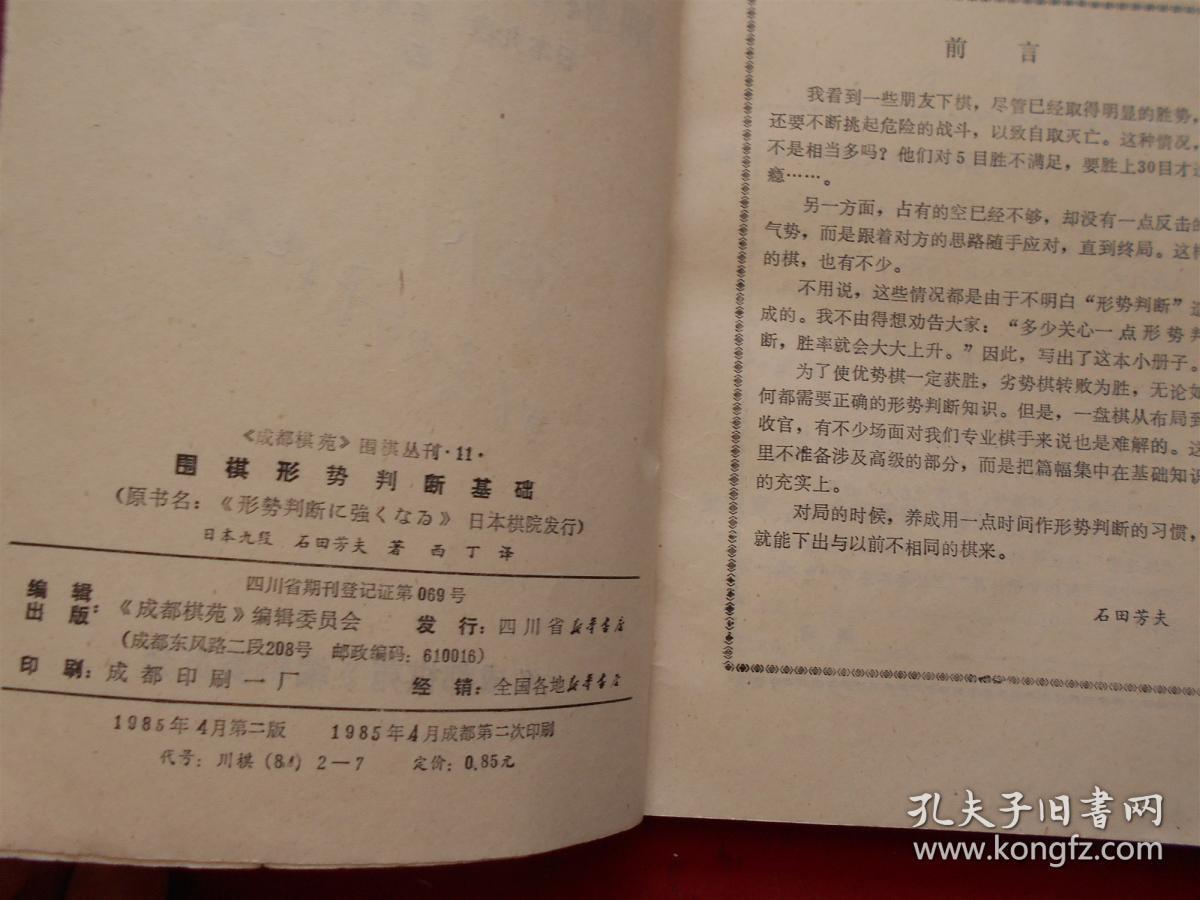 《成都棋苑》围棋丛刊·11·
围棋形势判断基础
(原书名：《形勢判断に強くなる》 日本棋院发行)
日本九段 石田芳夫 著 西丁 译
四川省期刊登记证第069号
编辑
出版：《成都棋苑》编辑委员会 发行：四川省新华书店
(成都东风路二段208号 邮政编码：610016)
印刷：成都印刷一厂 经销：全国各地新华书店
1985年4月第二版 1985年4月成都第二次印刷
代号：川棋(84)2—7 定价：0.85元
前 言
我看到一些朋友下棋，尽管已经取得明显的胜势，
还要不断挑起危险的战斗，以致自取灭亡。这种情况，
不是相当多吗？他们对5目胜不满足，要胜上30目才
瘾……。
另一方面，占有的空已经不够，却没有一点反击的
气势，而是跟着对方的思路随手应对，直到终局。这样
的棋，也有不少。
不用说，这些情况都是由于不明白“形势判断”造
成的。我不由得想劝告大家：“多少关心一点形势判
断，胜率就会大大上升。”因此，写出了这本小册子。
为了使优势棋一定获胜，劣势棋转败为胜，无论如
何都需要正确的形势判断知识。但是，一盘棋从布局到
收官，有不少场面对我们专业棋手来说也是难解的。这
里不准备涉及高级的部分，而是把篇幅集中在基础知识
的充实上。
对局的时候，养成用一点时间作形势判断的习惯，
就能下出与以前不相同的棋来。
石田芳夫
孔夫子旧书网
www.kongfz.com